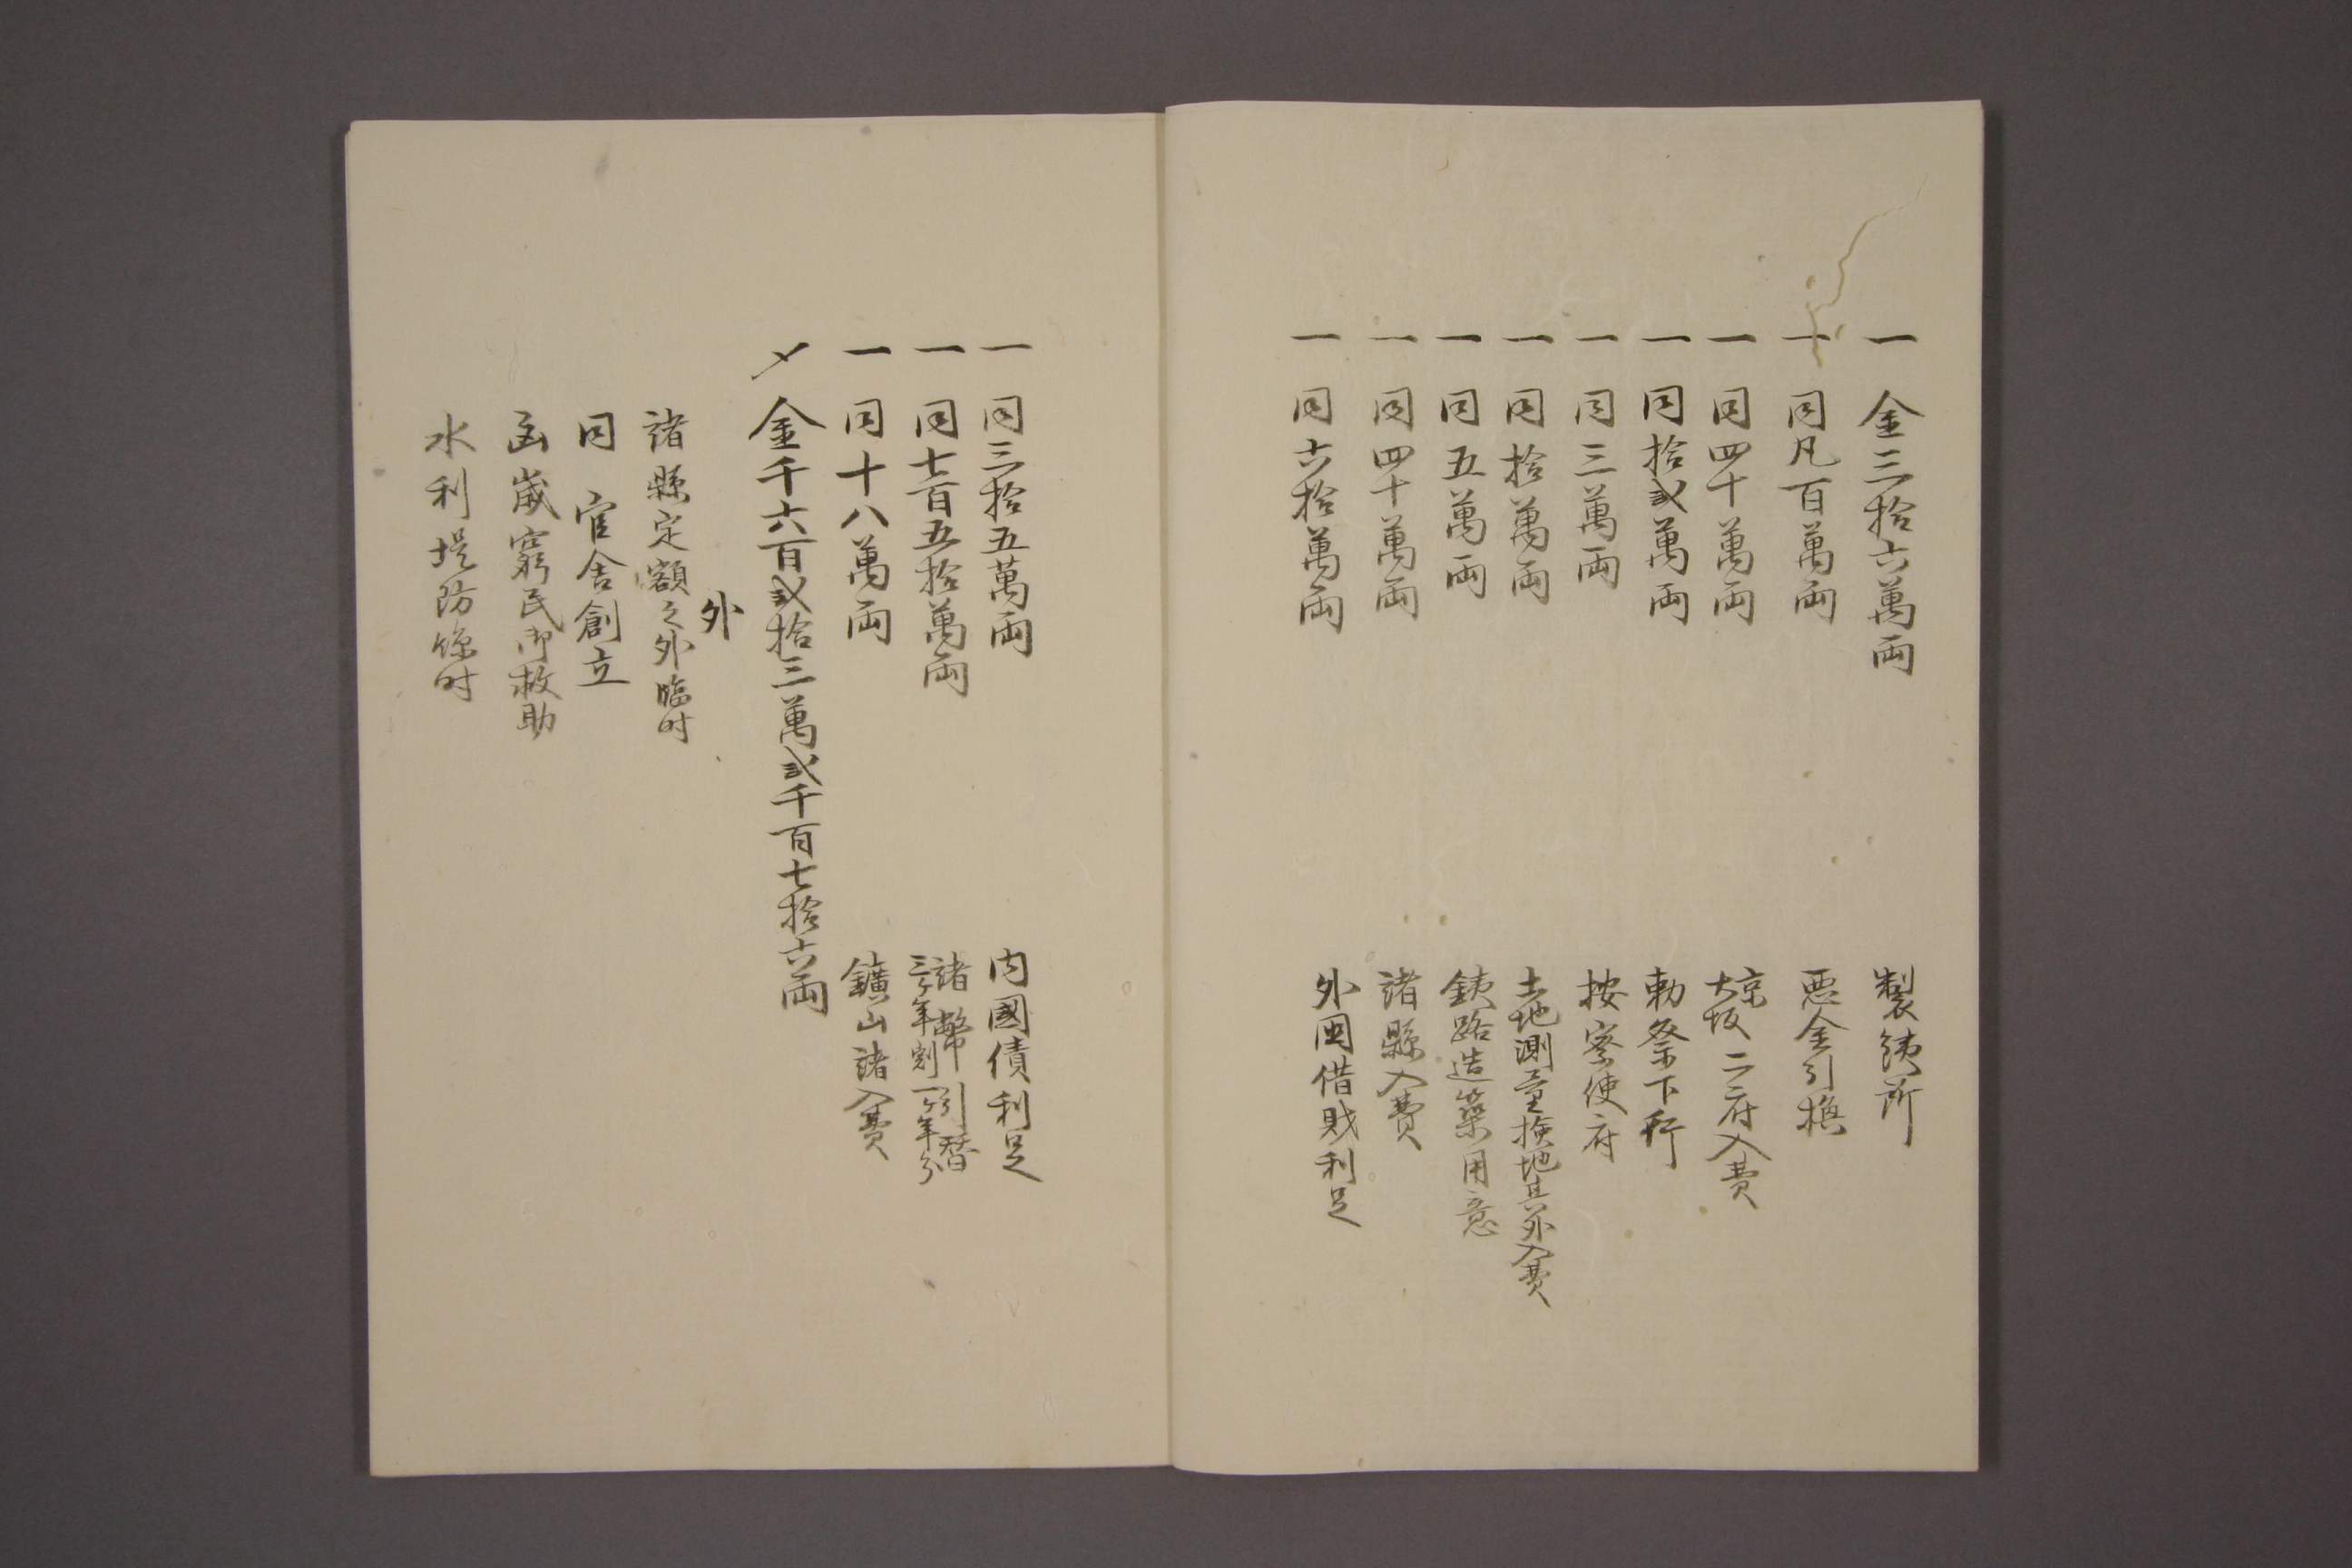 一 金三拾六萬両 製鉄所
一 同凡百萬両 悪金引換
一 同四十萬両 京大坂二府入費
一 同拾貳萬両 勅祭下行
一 同三萬両 按察使府
一 同拾萬両 土地測量検地其外入費
一 同五萬両 銕路造築用意
一 同四十萬両 諸縣入費
一 同六拾萬両 外国借財利足
一 同三拾五萬両 内國債利足
一 同七百五拾萬両 諸幣引替三ヶ年割一ヶ年分
一 同十八萬両 鑛山諸入費
〆 金千六百貳拾三萬貳千百七拾六両
外
諸縣定額之外臨時
同 官舎創立
凶歳窮民御救助
水利堤防臨時